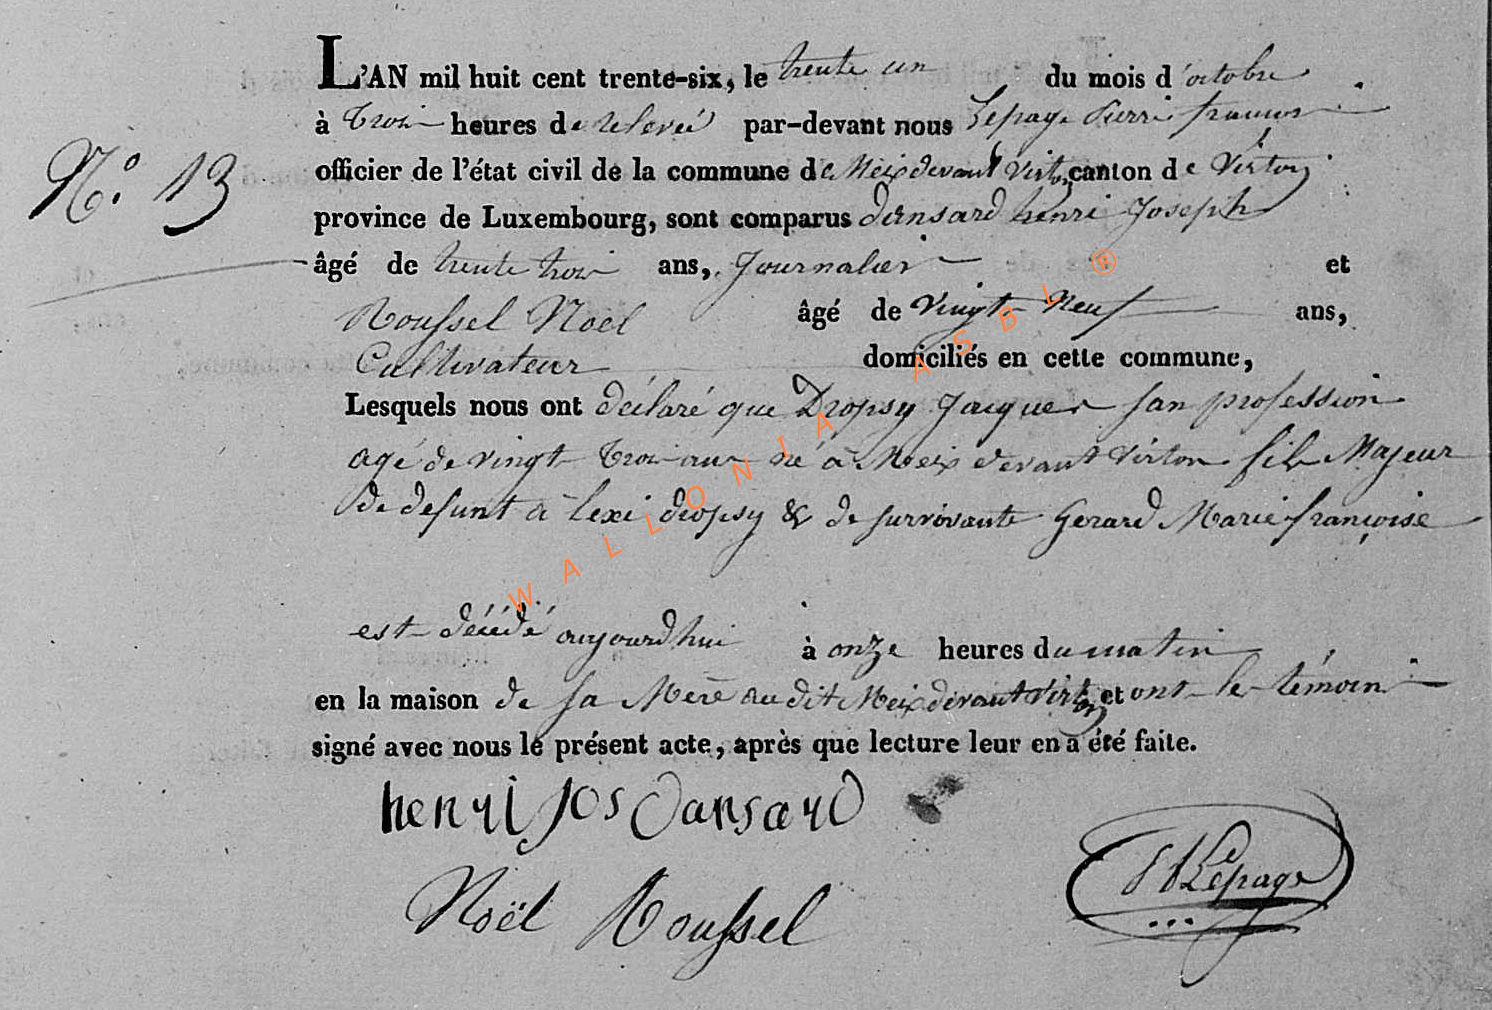 L'AN mil huit cent trente-six, le trente un du mois d'octobre
à trois heures de relevée par-devant nous Lepage Pierre françois
officier de l'état civil de la commune de Meix devant Virton, canton de Virton
N.º 13
province de Luxembourg, sont comparus dansard henri Joseph
âgé de trente trois ans, Journalier et
Roussel Noël âgé de Vingt Neuf ans,
Cultivateur domiciliés en cette commune,
Lesquels nous ont déclaré que Dropsy Jacques san profession
agé de vingt trois ans né à Meix devant Virton fils Majeur
de defunt à lexi dropsy & de survivante Gerard Marie françoise
est décédé aujourdhui à onze heures du matin
en la maison de sa Mère au dit Meix devant Virton et ont les témoins
signé avec nous le présent acte, après que lecture leur en a été faite.
henri jos Dansard
Noël Roussel
Lepage
WALLONIA ASBL ®